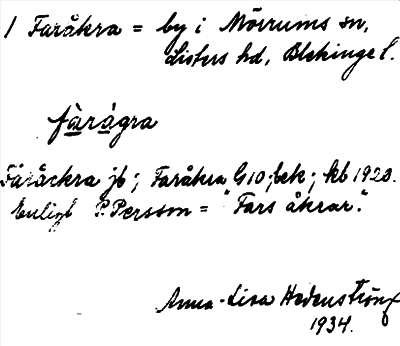 1 Faråkra = by i Mörrums sn,
Listers hd, Blekinge l.
fàrágra
Faråckra jb; Faråkra G10; bek; kb 1923.
Enligt P. Persson = "Fars åkrar."
Anna-Lisa Hedenström
1934.